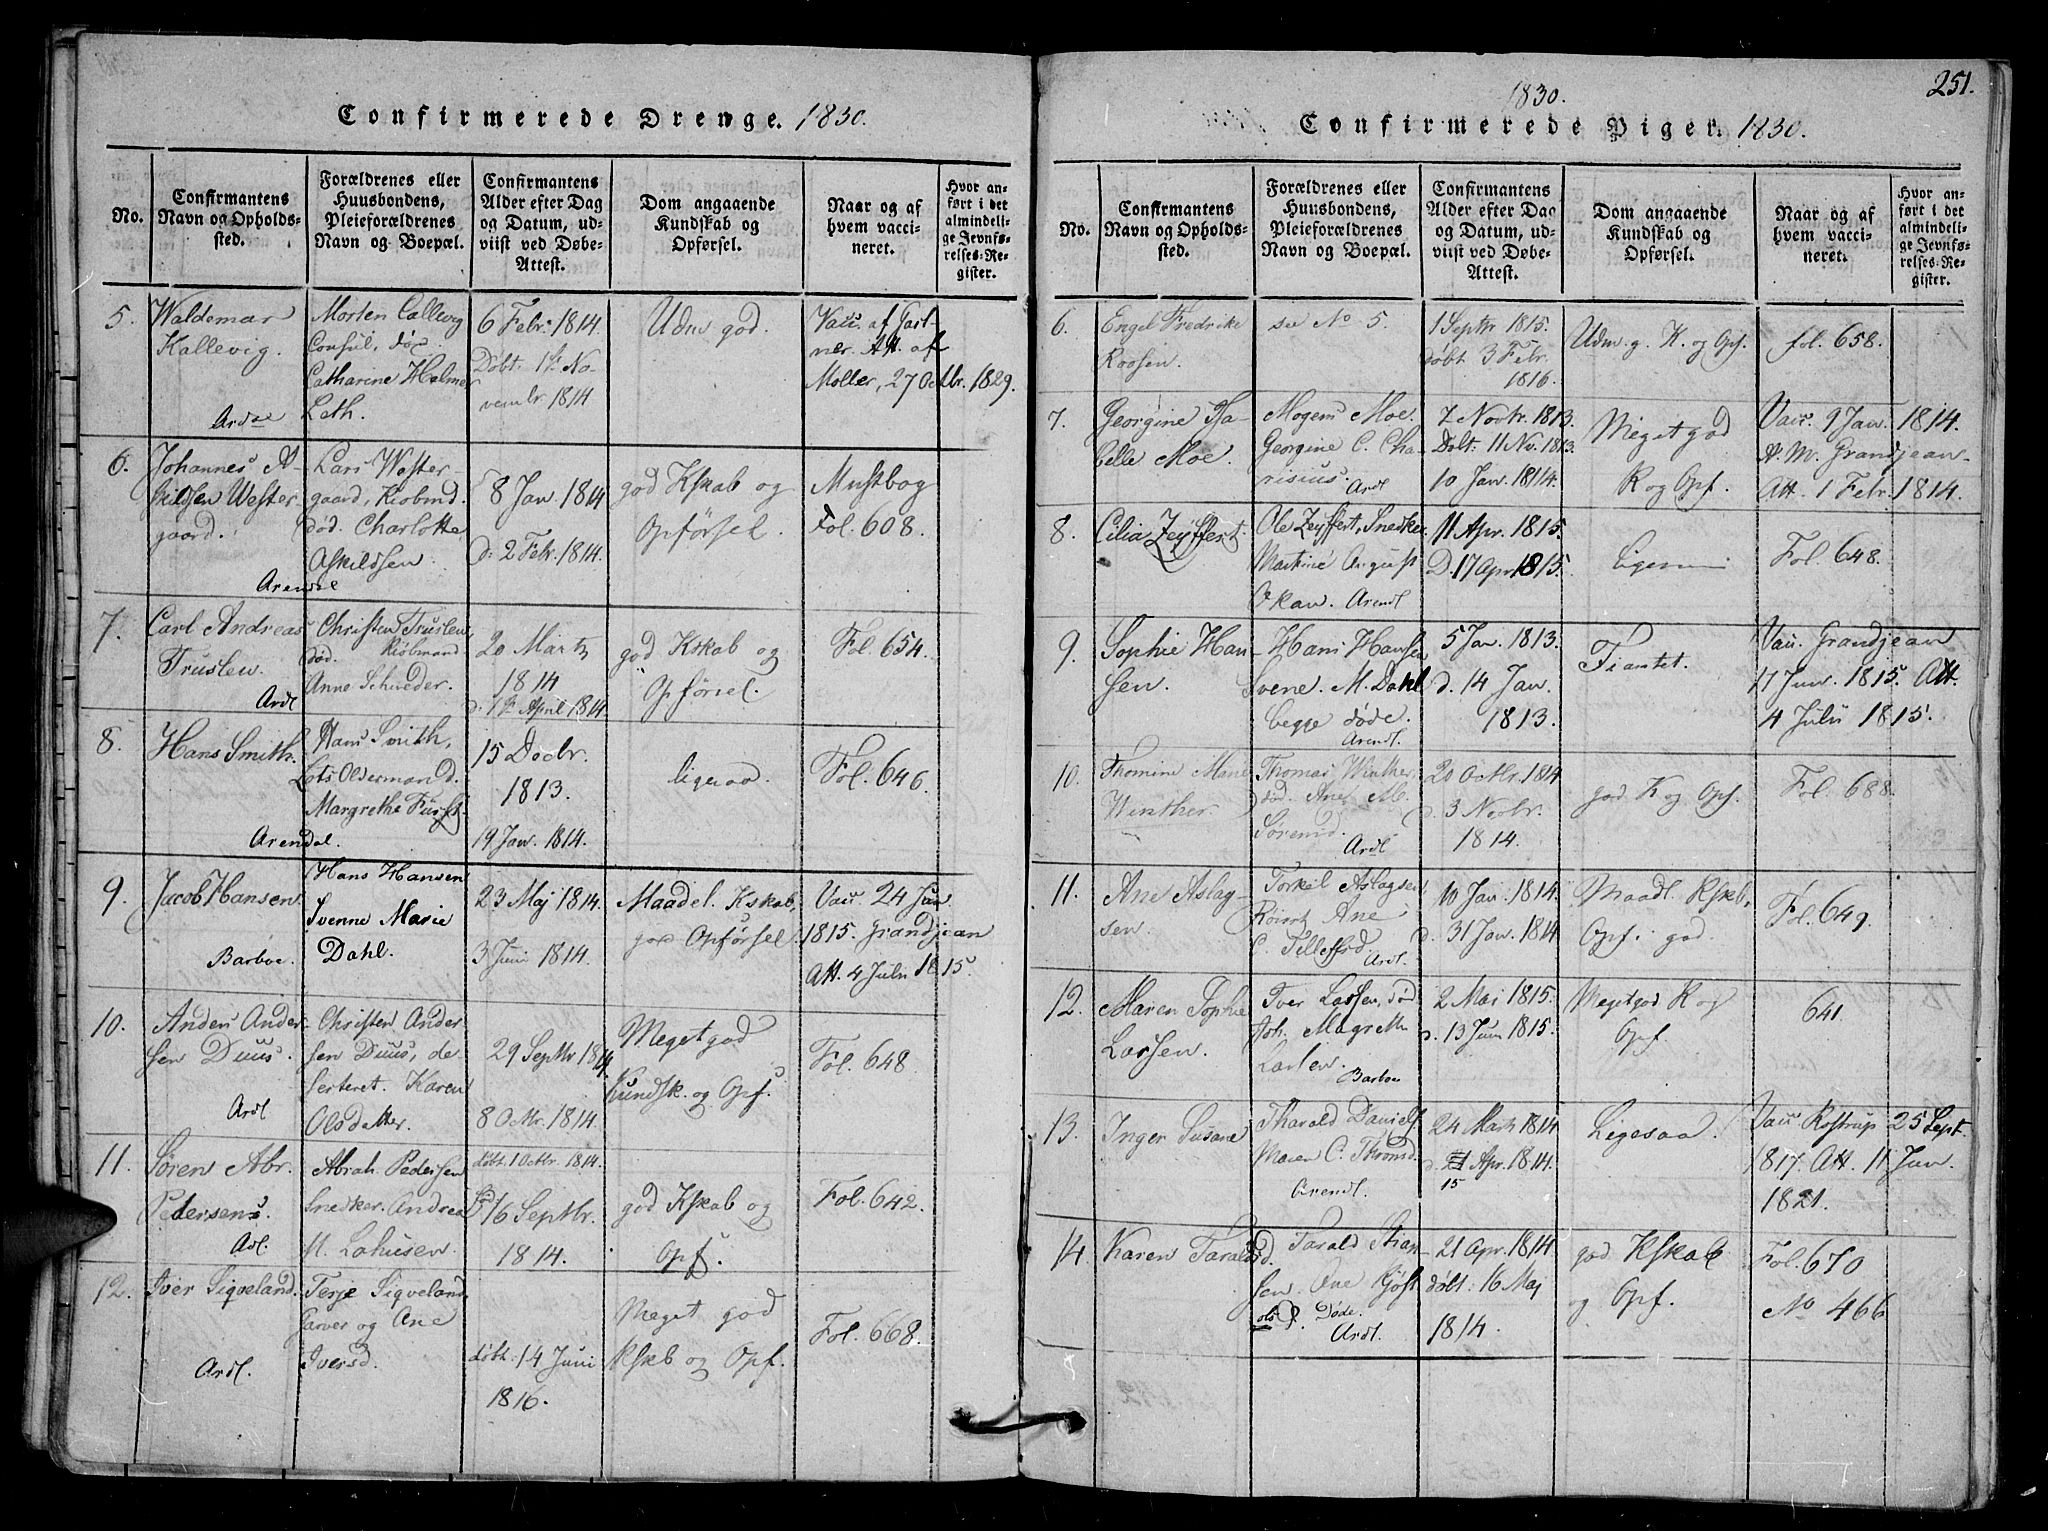 Confirmerede Drenge. 1830.
No.
Confirmantens Navn og Opholds-sted.
Forældrenes eller Huusbondens, Pleieforældrenes Navn og Boepæl.
Confirmantens Alder efter Dag og Datum, ud-viist ved Døbe-Attest.
Dom angaaende Kundskab og Opførsel.
Naar og af hvem vacci-neret.
Hvor an-ført i det almindeli-ge Jevnfø-relses-Re-gister.
5.
Waldemar
Kallevig.
Ardae
Morten Callevig
Consul, død.
Catharine Helmer
Leth.
6 Febr: 1814.
Døbt: 1ste No-
vembr 1814
Udm god.
Vacc. af Gart-
ner. Att. af
Møller, 27 Octbr. 1829.
6.
Johannes A-
skildsen Wester
gaard.
Arendal
Lars Wester-
gaard, Kiøbmd.
død. Charlotte
Askildsen
8 Jan. 1814
d: 2 Febr. 1814.
god Kskab og
Opførsel.
Mustbog
Fol. 608.
7.
Carl Andreas
Truslew
Ardl
Christen Truslew
død. Kiøbmand.
Anne Schrøder.
20 Martz
1814
d. 1ste April 1814.
god Kskab og
Opførsel.
Fol. 654.
8.
Hans Smith.
Arendal.
Hans Smith,
Lots Oldermand.
Margrethe Fürst
15 Decbr.
1813.
19 Jan. 1814.
ligesaa.
Fol. 646.
9.
Jacob Hansen
Barboe.
Hans Hansen
Svenne Marie
Dahl.
23 Maj 1814.
3 Juni 1814.
Maadel. Kskab,
god Opførsel.
Vacc. 24 Jun
1815. Grandjean
Att. 4 Julu 1815.
10.
Anders Ander-
sen Duus.
Ardl
Christen Ander
sen Duus, de-
serteret. Karen
Olsdatter.
29 Septbr 1814.
8 Octbr. 1814.
Megetgod
Kundsk. og Opf.
Fol. 648
11.
Søren Abr.
Pedersens.
Adl.
Abrah. Pedersen
Snedker. Andrea
M. Lahusen.
døbt. 1 Octbr. 1814.
16 Septbr.
1814.
god Kskab og
Opf.
Fol. 642.
12.
Iver Siqveland.
Ardl.
Terje Siqveland,
Garver og Ane
Iversd.
døbt: 14 Juni
1816.
Meget god
Kskb og Opf.
Fol. 668.
251.
1830.
Confirmerede Piger. 1830.
No.
Confirmantens Navn og Opholds-sted.
Forældrenes eller Huusbondens, Pleieforældrenes Navn og Boepæl.
Confirmantens Alder efter Dag og Datum, ud-viist ved Døbe-Attest.
Dom angaaende Kundskab og Opførsel.
Naar og af hvem vacci-neret.
Hvor an-ført i det almindeli-ge Jevnfø-relses-Re-gister.
6.
Engel Fredrike
Roosen.
see No 5.
1 Septbr 1815.
døbt 3 Febr.
1816.
Udm. g. K. og Opf.
fol. 658.
7.
Georgine Isa-
belle Moe.
Mogens Moe.
Georgine C. Cha
risius. Ardl
7 Novbr. 1813.
Døbt: 11 Nov. 1813.
10 Jan. 1814.
Megetgod
K og Opf.
Vacc. 9 Jan. 1814.
A. M. Grandjean
Att. 1 Febr. 1814.
8.
Cilia Zeyffert.
Ole Zeyffert, Snedker
Martine August
Okan. Arendl
11 Apr. 1815.
D. 17 Apr 1815.
Ligesaa
Fol. 648.
9.
Sophie Han
sen.
Hans Hansen
Svene. M. Dahl
begge døde.
Arendl.
5 Jan. 1813.
d. 14 Jan.
1813.
Fiantet.
Vacc. Grandjean
17 Jun. 1815. Att.
4 Julu 1815.
10.
Thomine Marie
Winther.
Thomas Winther,
død. Ane M.
Sørensd.
Ardl
20 Octbr. 1814
d. 3 Novbr.
1814.
god K og Opf.
Fol. 688.
11.
Ane Aslag-
sen.
Torkel Aslagsen
Ane
C. Tellefsd.
Ardl.
10 Jan. 1814.
d. 31 Jan. 1814
Maadl. Kskb,
Opf: god.
Fol. 649.
12.
Maren Sophie
Larsen.
Iver Larsen, død
Joh. Magrethe
Larsen.
Barboe
2 Mai 1815.
d. 13 Juni 1815.
Megetgod K og
Opf.
641.
13.
Inger Susane
Tharald Daniels.
Maren C. Thromsd.
Arendl.
24 Martz 1814
d. 21 Apr. 1814.
15
Ligesaa.
Vacc Rostrup 25 Sept.
1817. Att. 11 Jan.
1821.
14.
Karen Taraldsd.
Tarald Stian-
sen. Ane Kjøst
olsd. Døde.
Ardl.
21 Apr. 1814
døbt: 16 Maj
1814.
god Kskab
og Opf.
Fol. 670
No 466